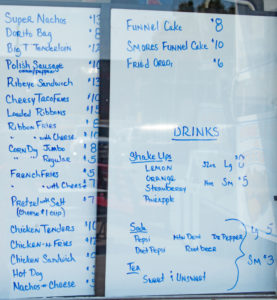 Super Nachos $13
Dorito Bag $8
Big T Tenderloin $12
Polish Sausage $10
Ribeye Sandwich $13
Cheesy Tacofries $10
Loaded Ribbons $15
Ribbon Fries $8
" " with Cheese $10
Corn Dog Jumbo $8
" " Regular $5
French Fries $5
" " with Cheese $7
Pretzel with Salt $7
(Cheese $1 cup)
Chicken Tenders $10
Chicken-n-Fries
Chicken Sandwich
Hot Dog
Nachos-n-Cheese $5
Funnel Cake $8
Smores Funnel Cake $10
Fried Oreo $6
DRINKS
Shake Ups
Lemon 32oz Lg
Orange
Strawberry Sm $5
Pineapple
Soda
Pepsi Mtn Dew Dr Pepper Lg 5
Diet Pepsi Root beer
Sm $3
Tea
Sweet & Unsweet